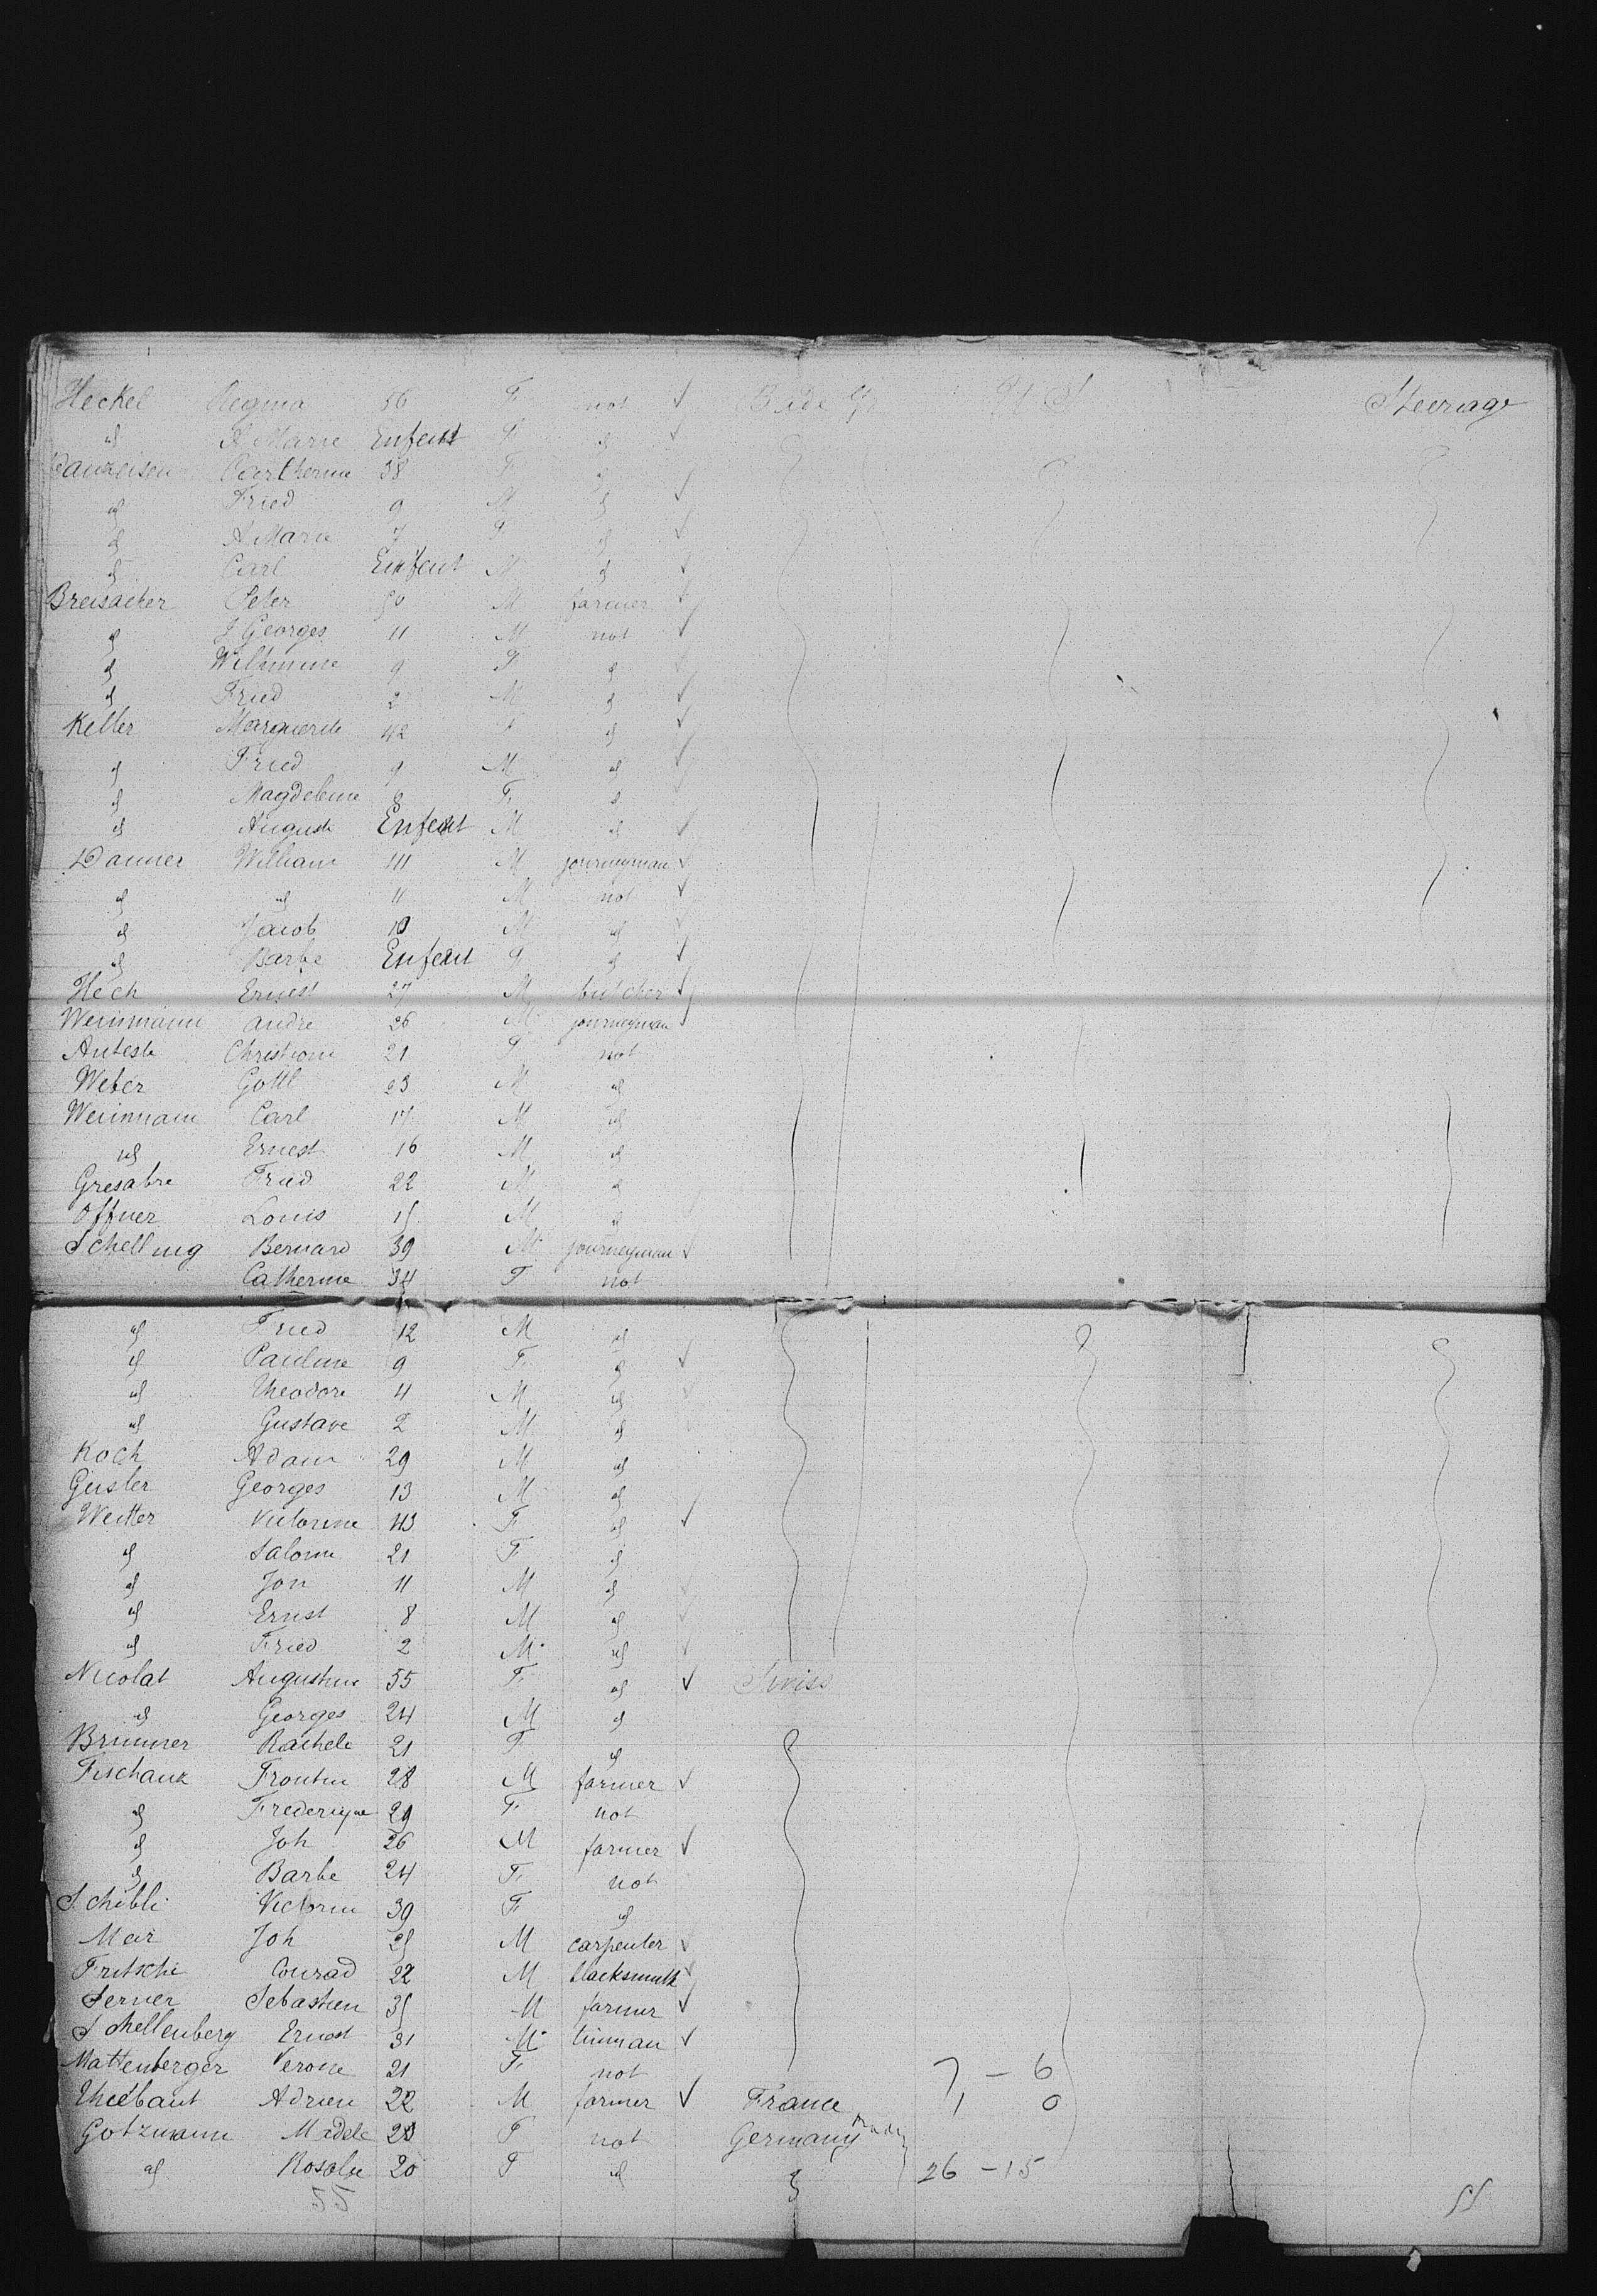 Heckel Regina 56 F not Bade Steerage
" A Marie Enfant F "
Danzeisen Catherine 38 F "
" Fried 9 M "
" A Marie 7 F "
" Carl Enfant M "
Breisacher Peter 50 M farmer
" J Georges 11 M not
" Wilhmine 9 F "
" Fried 2 M "
Keller Marguerite 42 F "
" Fried 9 M "
" Magdelena 8 F "
" Auguste Enfant M "
Danner William 41 M journeyman
" " 11 M not
" Jacob 10 M "
" Barbe Enfant F "
Hech Ernest 27 M butcher
Weinmann André 26 M journeyman
Christiane 21 F not
Weber Gottl 23 M "
Weinmann Carl 17 M "
" Ernest 16 M "
Fried 22 M "
Offner Louis 15 M "
Schelling Bernard 39 M journeyman
Catherine 34 F not
" Fried 12 M "
" Pauline 9 F "
" Theodore 4 M "
" Gustave 2 M "
Koch Adam 29 M "
Geisler Georges 13 M "
Weitter Victorine 43 F "
" Salome 21 F "
" Jon 11 M "
" Ernst 8 M "
" Fried 2 M "
Nicolat Augustine 55 F " Swiss
" Georges 24 M "
Brunner Rachele 21 F "
Tischauz 28 M farmer
" Frederique 29 F not
" Joh 26 M farmer
" Barbe 24 F not
Schibli Victorin 39 F "
Meir Joh 25 M carpenter
Fritschi Conrad 22 M blacksmith
Serner Sebastien 35 M farmer
Schellenberg Ernest 31 M tinman
Mattenberger Verone 21 F not 7 - 6
Thiebaut Adrien 22 M farmer France 1 0
Gotzmann Madele 23 F not Germany
" Rosalie 20 F " " 26 - 15
55 55